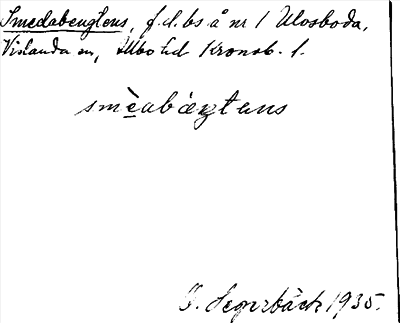 Smedabengtens, f.d. bs å nr 1 Ulosboda,
Vislanda sn, Allbo hd Kronob. l.
smèabæŋtens
G. Segerbäck 1935.